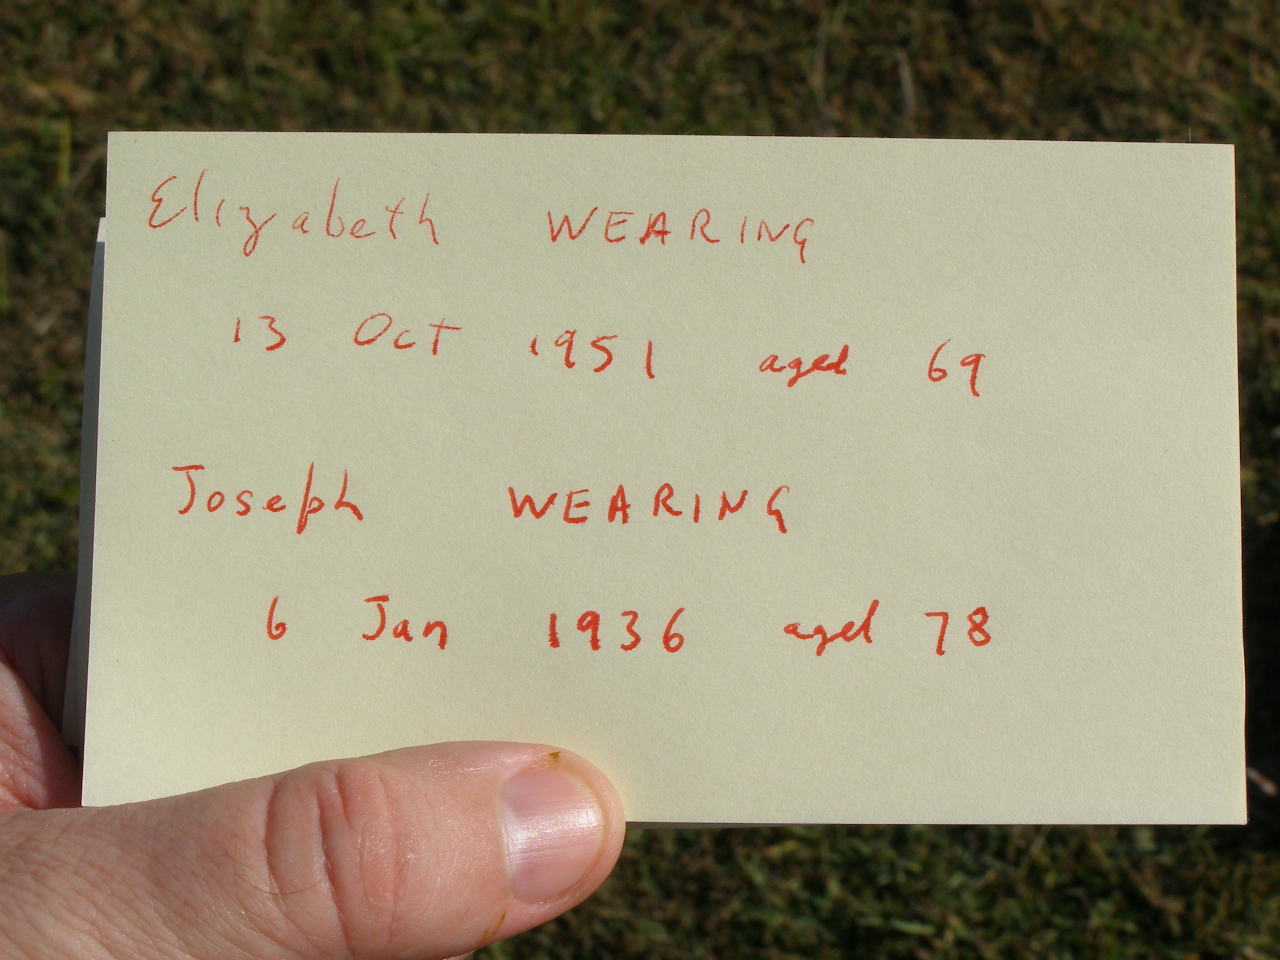 Elizabeth WEARING
13 Oct 1951 aged 69
Joseph WEARING
6 Jan 1936 aged 78